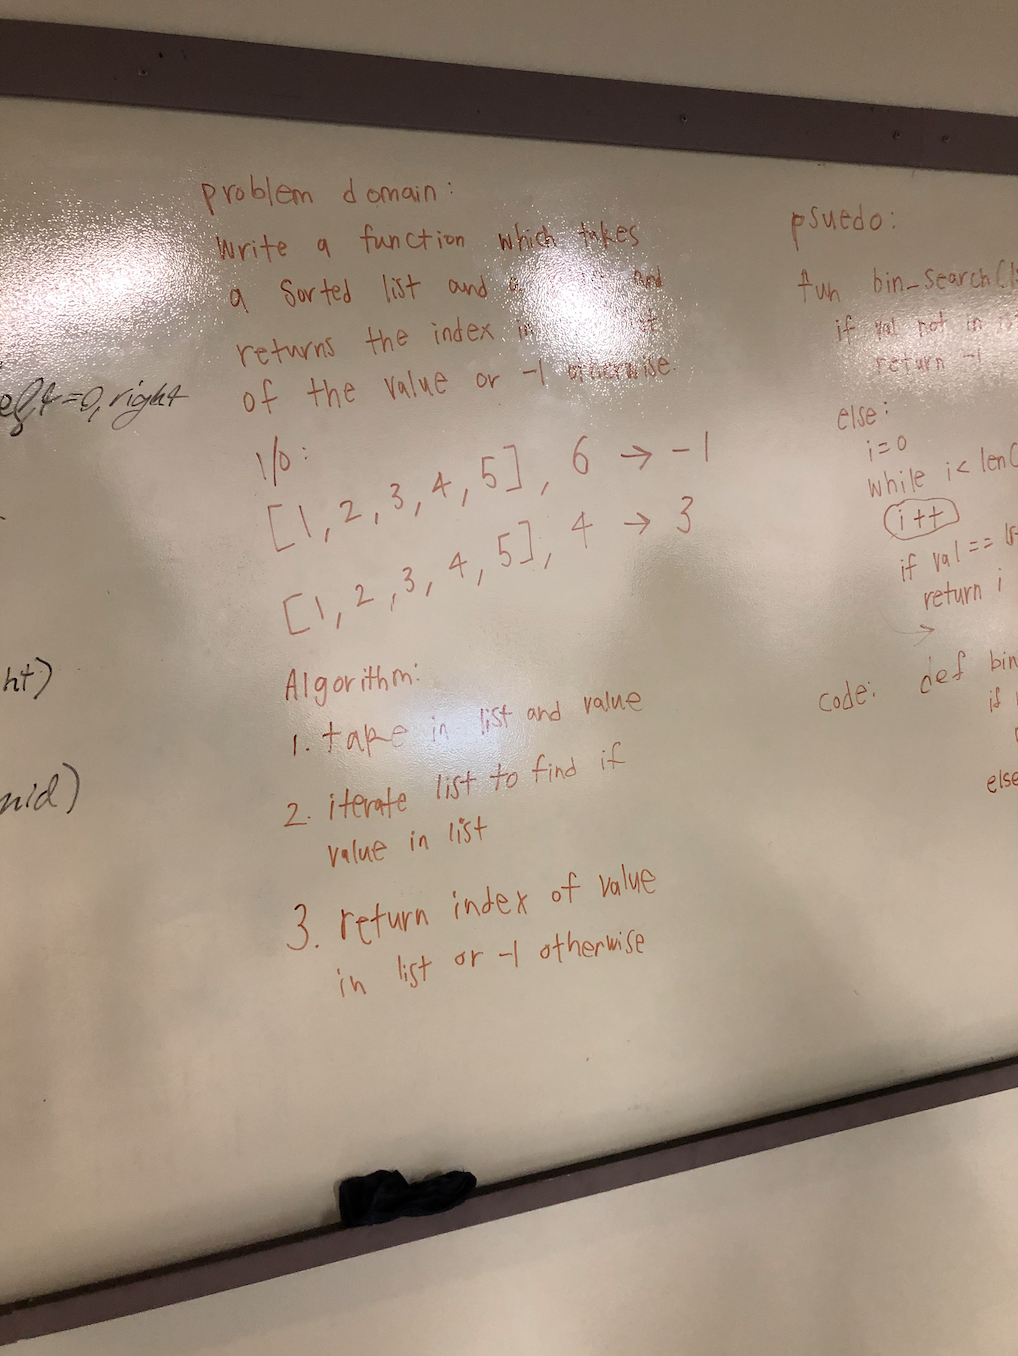 problem domain:
Write a function which takes
a sorted list and a and
returns the index in
of the value or -1 otherwise.
I/O:
[1, 2, 3, 4, 5], 6 → -1
[1, 2, 3, 4, 5], 4 → 3
Algorithm:
1. take in list and value
2. iterate list to find if
value in list
3. return index of value
in list or -1 otherwise
psuedo:
fun bin_search(
if val not in
return -1
else:
i=0
while i< len(
i++
if val ==
return i
→
code: def bin
if
else
=0, right
ht)
mid)